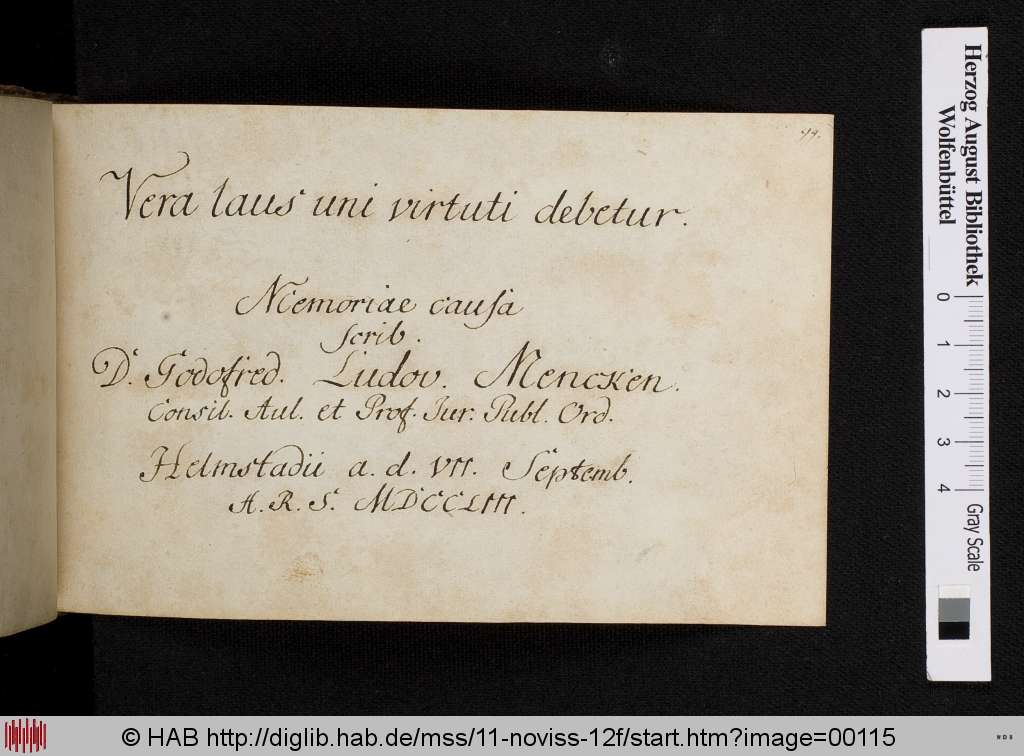 Vera laus uni virtuti debetur.
Memoriae causa
scrib.
D. Godofred. Ludov. Mencken.
Consil. Aul. et Prof. Iur. Publ. Ord.
Helmstadii a. d. VII. Septemb.
A. R. S. MDCCLIII.
Herzog August Bibliothek
Wolfenbüttel
0
1
2
3
4
Gray Scale
© HAB http://diglib.hab.de/mss/11-noviss-12f/start.htm?image=00115